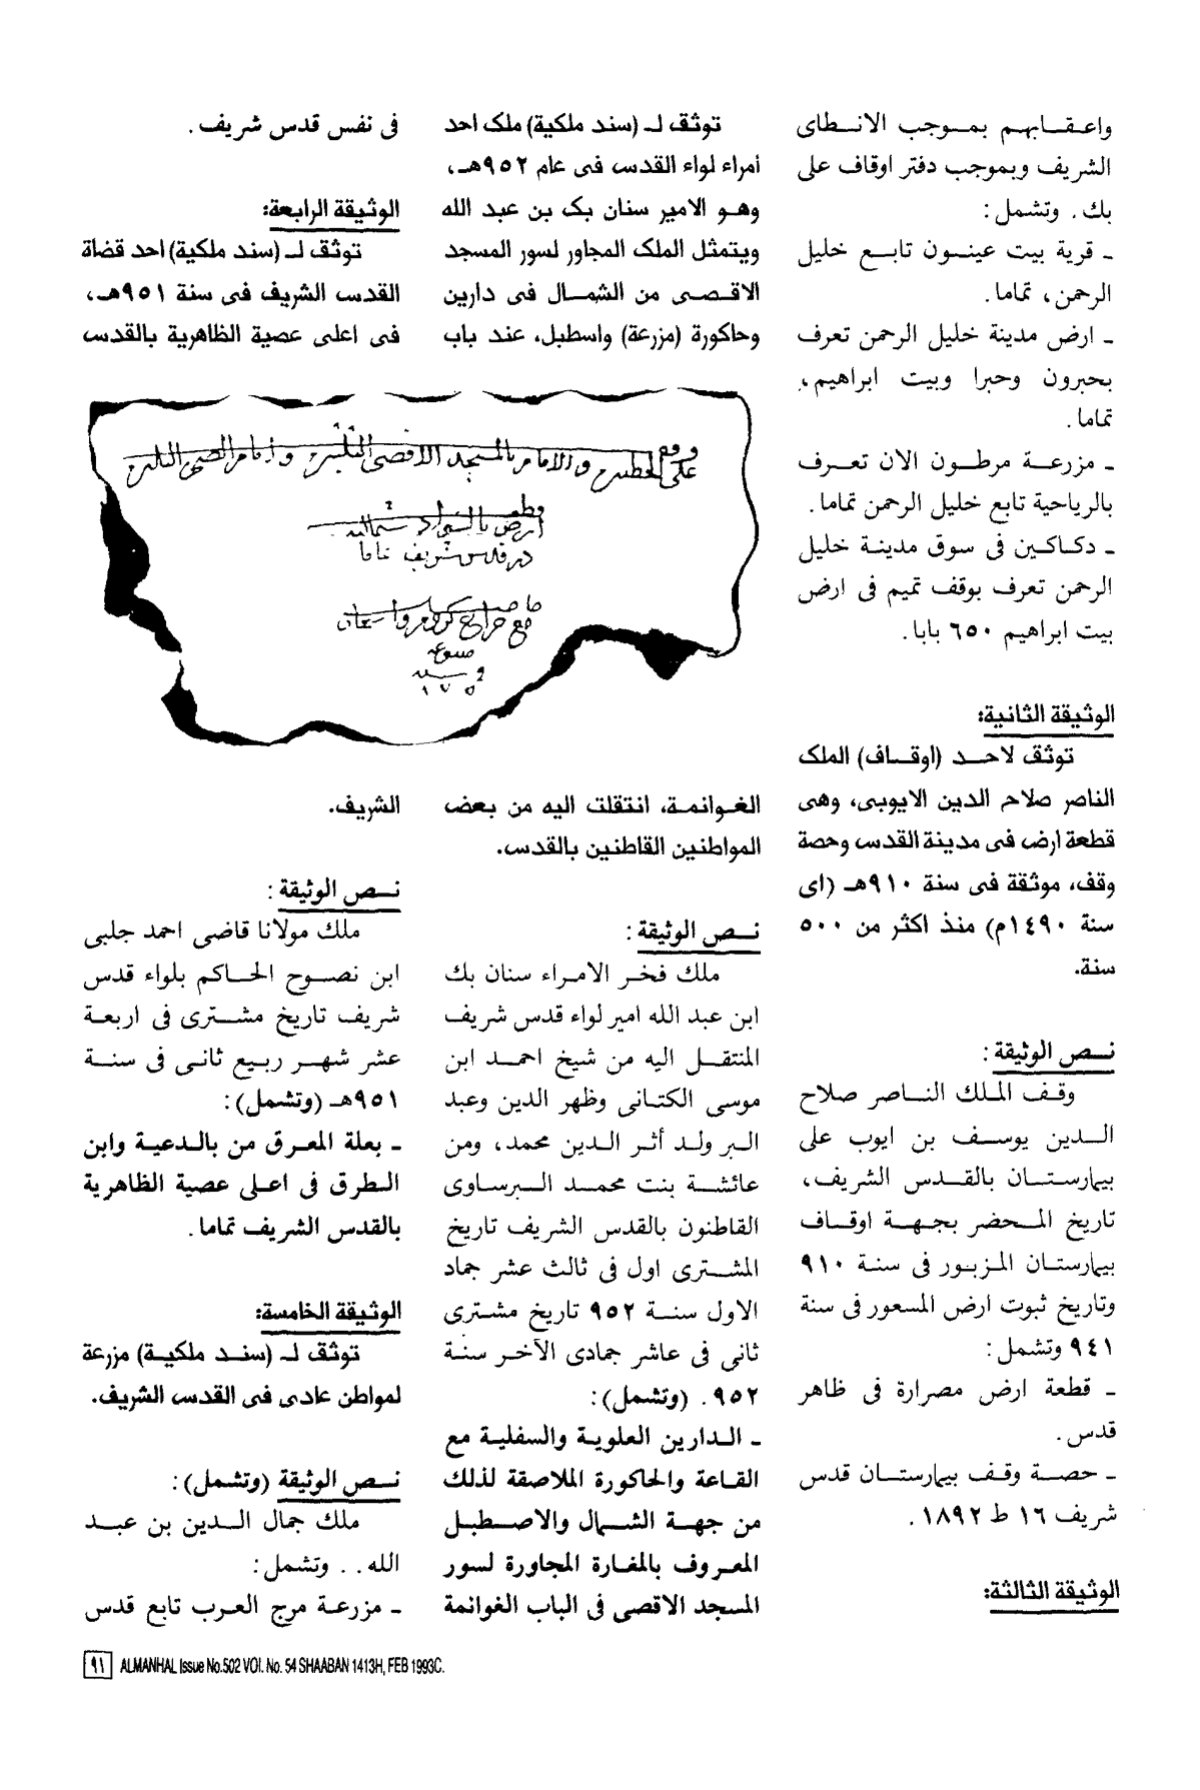 واعـقـابهم بمـوجب الانـطاى
الشريف وبموجب دفتر اوقاف على
بك . وتشمل :
ـ قرية بيت عينـون تابـع خليل
الرحمن، تماما.
ـ ارض مدينة خليل الرحمن تعرف
بحبرون وحبرا وبيت ابراهيم،
تماما .
ـ مزرعـة مرطـون الان تعـرف
بالرياحية تابع خليل الرحمن تماما .
ـ دكـاكـين فى سوق مدينـة خليل
الرحمن تعرف بوقف تميم فى ارض
بيت ابراهيم ٦٥٠ بابا .
الوثيقة الثانية:
توثق لاحـد (اوقـاف) الملك
الناصر صلاح الدين الايوبى، وهى
قطعة ارض فى مدينة القدس وحصة
وقف، موثقة فى سنة ٩١٠هـ (اى
سنة ١٤٩٠م) منذ اكثر من ٥٠٠
سنة.
نـص الوثيقة :
وقـف المـلك النـاصر صلاح
الـدين يوسـف بن ايوب على
بيمارستـان بالقـدس الشريف،
تاريخ المـحضر بجـهـة اوقـاف
بيمارستـان المـزبـور فى سنـة ٩١٠
وتاريخ ثبوت ارض المسعور فى سنة
٩٤١ وتشمل :
ـ قطعة ارض مصرارة فى ظاهر
قدس .
ـ حصـة وقـف بيمارستـان قدس
شريف ١٦ ط ١٨٩٢ .
الوثيقة الثالثة:
توثق لـ (سند ملكية) ملك احد
أمراء لواء القدس فى عام ٩٥٢هـ،
وهـو الامير سنان بك بن عبد الله
ويتمثل الملك المجاور لسور المسجد
الاقـصـى من الشمـال فى دارين
وحاكورة (مزرعة) واسطبل، عند باب
الغـوانمـة، انتقلت اليه من بعض
المواطنين القاطنين بالقدس.
نـص الوثيقة :
ملك فخـر الامـراء سنان بك
ابن عبد الله امير لواء قدس شريف
المنتقـل اليه من شيخ احمـد ابن
موسى الكتـانى وظهر الدين وعبد
الـبر ولـد أثـر الـدين محمد، ومن
عائشـة بنت محمـد الـبرسـاوى
القاطنون بالقدس الشريف تاريخ
المشـترى اول فى ثالث عشر جماد
الاول سنـة ٩٥٢ تاريخ مشـترى
ثانى فى عاشر جمادى الآخـر سنـة
٩٥٢ . (وتشمل) :
ـ الـدارين العلويـة والسفليـة مع
القـاعة والحاكورة الملاصقة لذلك
من جهـة الشـمال والاصـطبـل
المعـروف بالمغـارة المجاورة لسور
المسجد الاقصى فى الباب الغوانمة
فى نفس قدس شريف .
الوثيقة الرابعة:
توثق لـ (سند ملكية) احد قضاة
القدس الشريف فى سنة ٩٥١هـ،
فى اعلى عصية الظاهرية بالقدس
الشريف.
نـص الوثيقة :
ملك مولانا قاضى احمد جلبى
ابن نصـوح الحـاكم بلواء قدس
شريف تاريخ مشـترى فى اربعـة
عشر شهـر ربيـع ثانـى فى سنـة
٩٥١هـ (وتشمل) :
ـ بعلة المعـرق من بالـدعيـة وابن
الـطرق فى اعـلى عصية الظاهرية
بالقدس الشريف تماما .
الوثيقة الخامسة:
توثق لـ (سنـد ملكيـة) مزرعة
لمواطن عادى فى القدس الشريف.
نـص الوثيقة (وتشمل) :
ملك جمال الـدين بن عبـد
الله . . وتشمل :
ـ مزرعـة مرج العـرب تابع قدس
٩١ ALMANHAL Issue No.502 VOl. No. 54 SHAABAN 1413H, FEB 1993C.